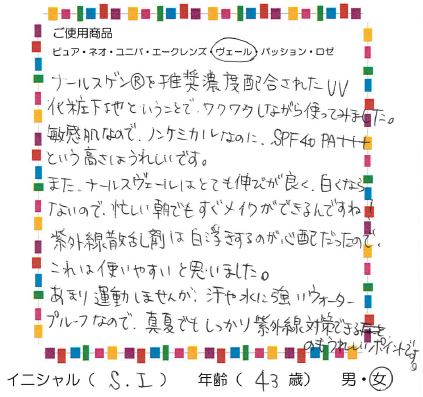 ご使用商品
ピュア・ネオ・ユニバ・エークレンズ・ヴェール・パッション・ロゼ
ナールスゲン®を推奨濃度配合されたUV
化粧下地ということで、ワクワクしながら使ってみました。
敏感肌なので、ノンケミカルなのに、SPF40 PA+++
という高さはうれしいです。
また、ナールスヴェールはとても伸びが良く、白くなら
ないので、忙しい朝でもすぐメイクができるんですね!
紫外線散乱剤は白浮きするのが心配だったので、
これは使いやすいと思いました。
あまり運動しませんが、汗や水に強いウォーター
プルーフなので、真夏でもしっかり紫外線対策できる
のもうれしいポイントです。
イニシャル ( S.I ) 年齢 ( 43 歳 ) 男・女